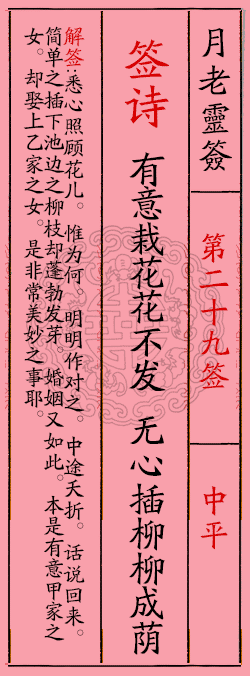 月老靈簽
第二十九签
中平
签诗
有意栽花花不发 无心插柳柳成荫
解签:悉心照顾花儿。惟为何、明明作对之。中途夭折。话说回来。
简单之插下池边之柳枝却蓬勃发芽。婚姻又如此。本是有意甲家之
女。却娶上乙家之女。是非常美妙之事耶。